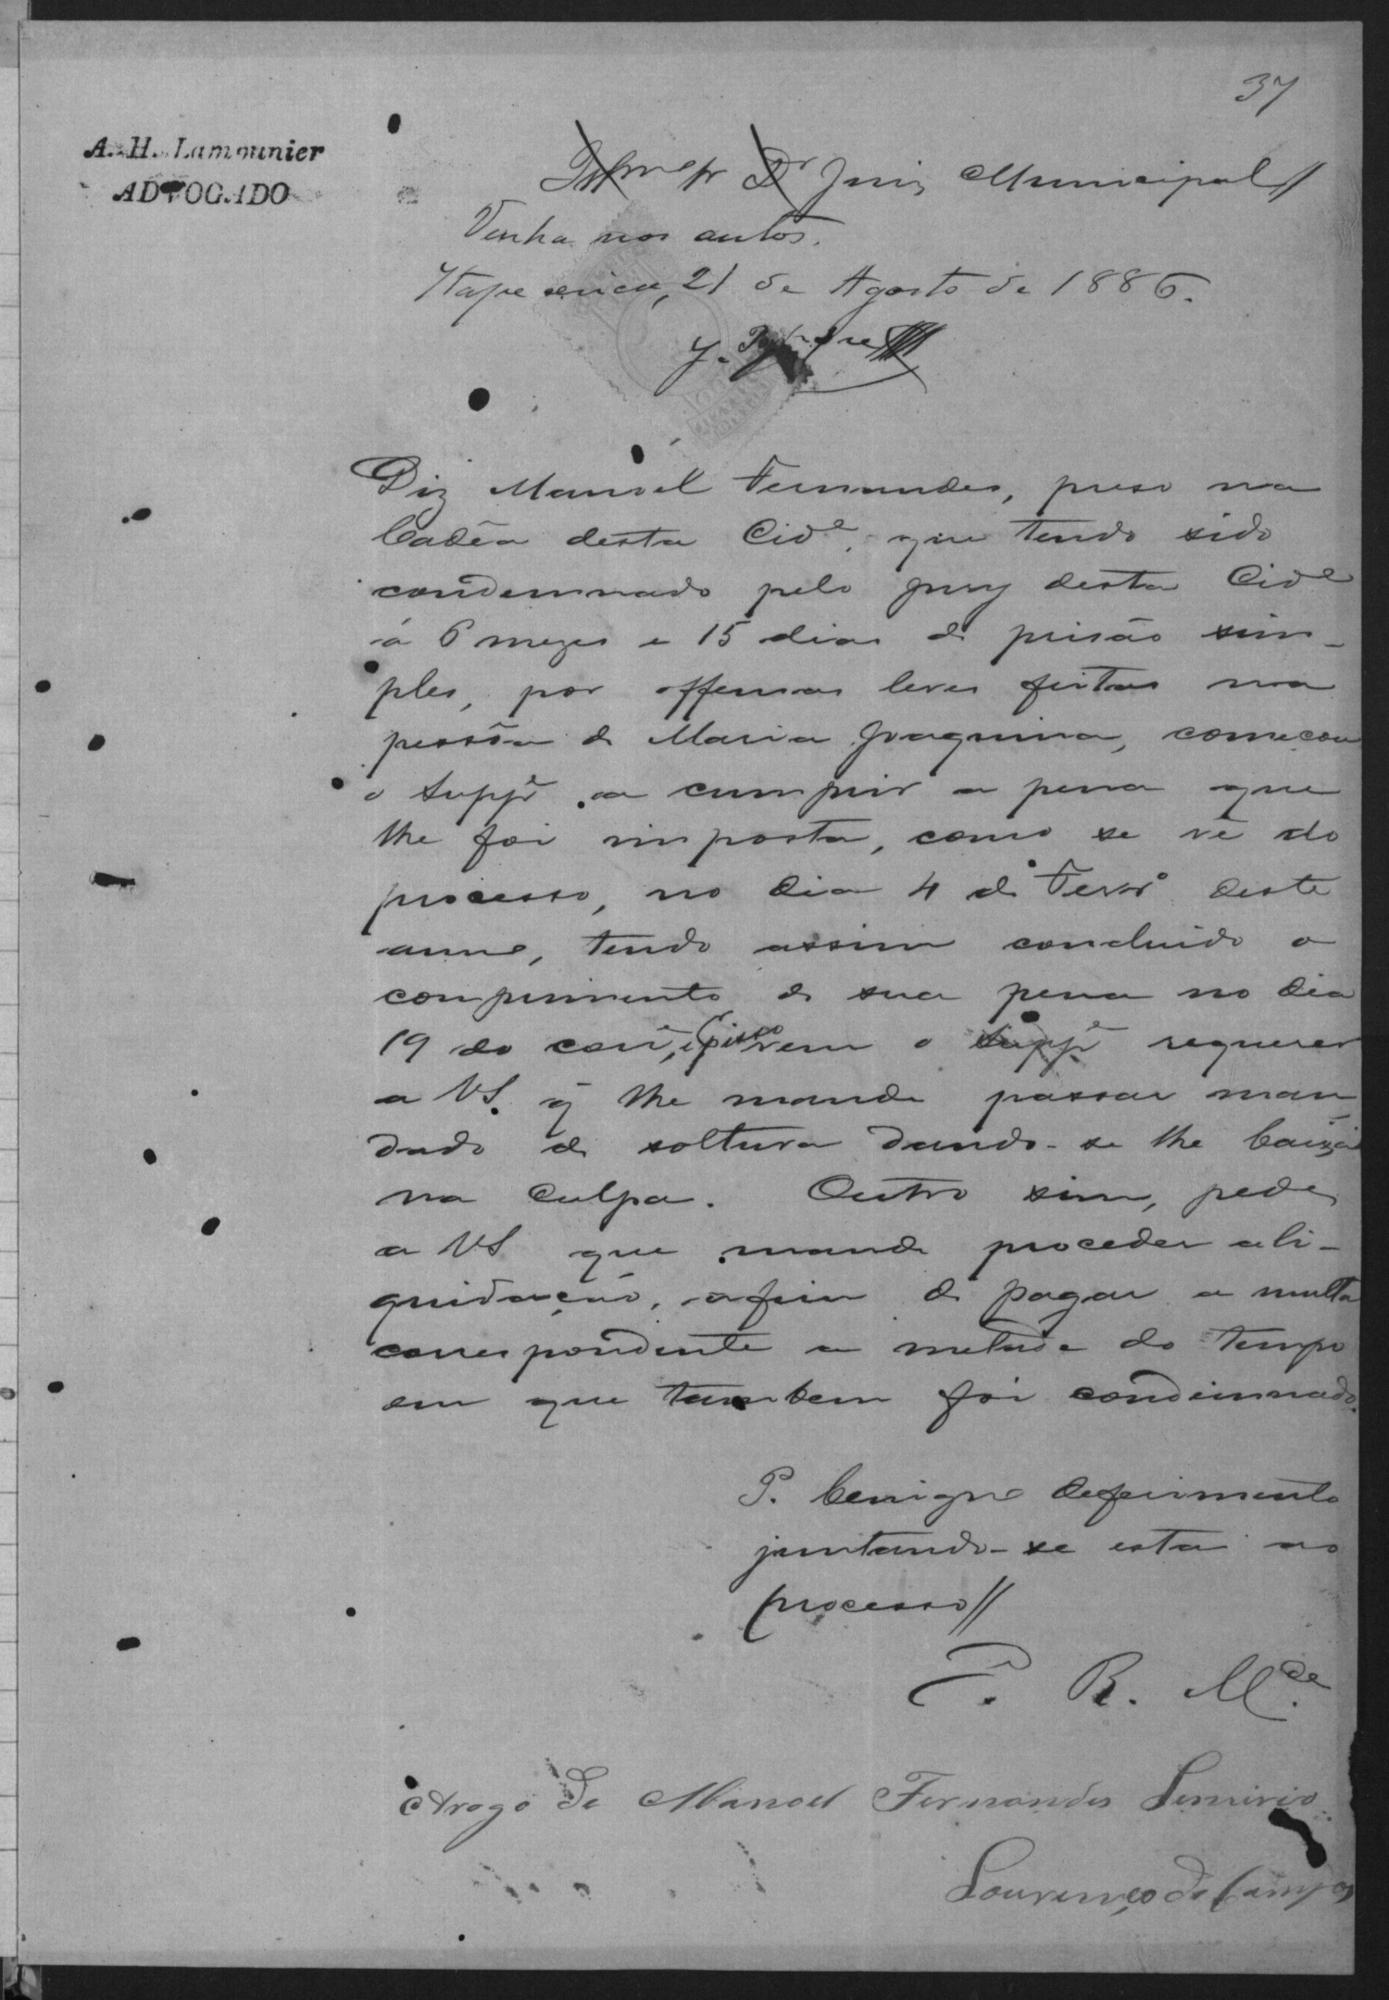 37
A. H. Lamounier
ADVOGADO
Illmº Sr Dr Juiz Municipal
Venha nos autos.
Itapecerica, 21 de Agosto de 1886.
Diz Manoel Fernandes, preso na
Cadêa desta Cidᵉ. que tendo sido
condemnado pelo jury desta Cidᵉ
á 6 mezes e 15 dias de prisão sim-
ples, por offensas leves feitas na
pessôa de Maria Joaquina, começou
o Suppᵉ a cumprir a pena que
lhe foi imposta, como se vê do
processo, no dia 4 de Fevrº deste
anno, tendo assim concluido o
comprimento de sua pena no dia
19 do corrᵉ, e por isso vem o Suppᵉ requerer
a VS. q̃ lhe mande passar man
dado de soltura dando-se lhe baixa
na culpa. Outro sim, pede
a VS que mande proceder a li-
quidação, afim de pagar a multa
correspondente a metade do tempo
em que tambem foi condemnado.
P. benigno deferimento
juntando-se esta ao
processo//
E. R. Mᶜᵉ.
Arogo de Manoel Fernandes
Lourenço de Campos